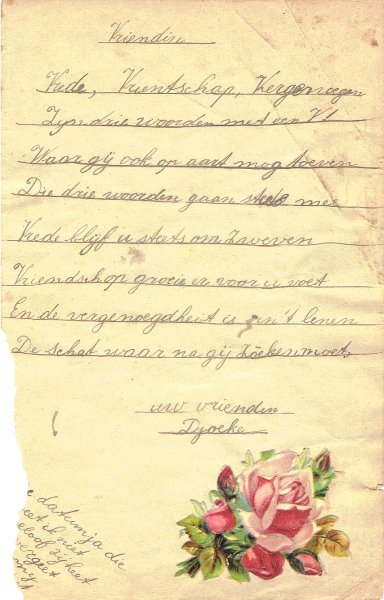 Vriendin
Vrede, Vrientschap, Vergenoegen
Zyn drie woorden met een V
Waar gij ook op aart mog toeven
Die drie woorden gaan steets mee
Vrede blijf u steets om zweven
Vriendschap groeie er voor u voet
En de vergenoegdheit is in't lenen
De schat waar na gij zoeken moet
uw vrienden
Djoeke
datum ja die
ik niet
eloof zij heet
ergeet